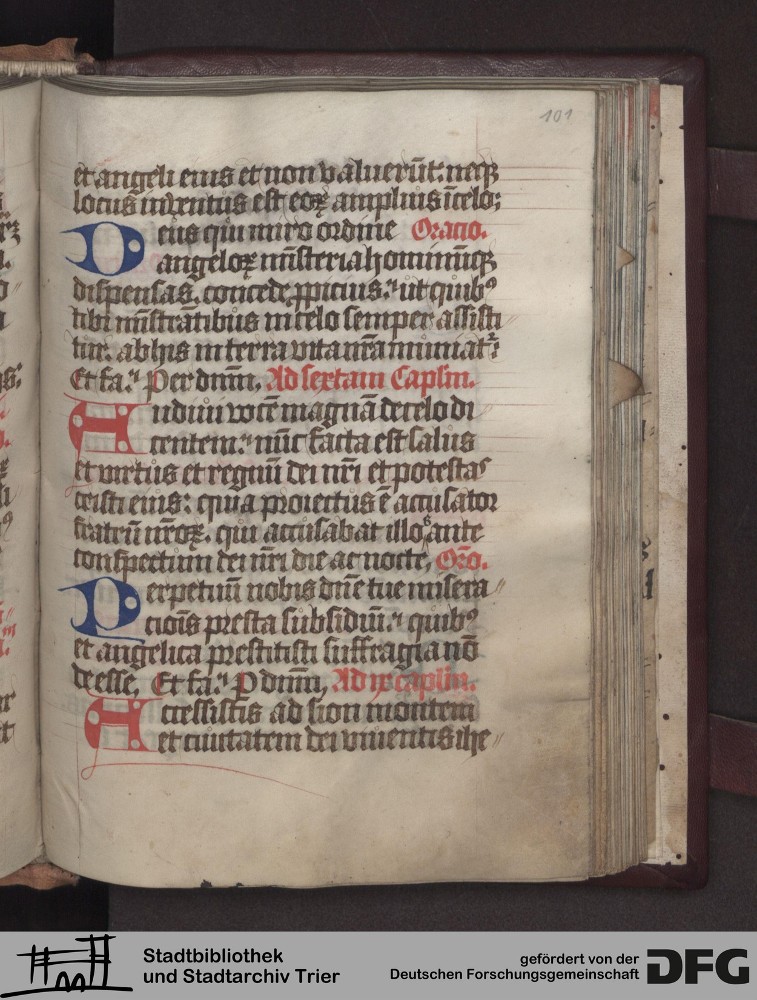 101
et angeli eius et non valuerūt: neqꝫ
locus inventus est eoꝝ amplius ī celo:
Deus qui miro ordine Oracio.
angeloꝝ mīsteria hominūqꝫ
dispensas. concede ꝓpicius: ut quibꝰ
tibi mīstrātibus in celo semper assisti
tur. ab his in terra vita nr̄a muniat᷑:
Et fa: Per dnm̄. Ad sextam Caplm̄.
Audivi vocē magnā de celo di
centem: nūc facta est salus
et virtus et regnū dei nr̄i et potestas
cristi eius: quia proiectus ē accusator
fratrū nr̄oꝝ. qui accusabat illos ante
conspectum dei nr̄i die ac nocte, Orō.
Perpetuū nobis dn̄e tue misera
cionis presta subsidiū: quibꝰ
et angelica prestitisti suffragia nō
deesse, Et fa: ꝑ dnm̄, Ad ix caplm̄.
Accessistis ad sion montem
et civitatem dei viventis ihe
Stadtbibliothek
und Stadtarchiv Trier
gefördert von der
Deutschen Forschungsgemeinschaft
DFG